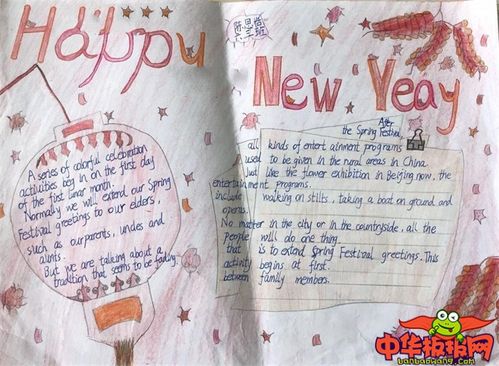 Happy
New Yeay
A series of colorful celebration
activities begin on the first day
of the first lunar month.
Normally we will extend our Spring
Festival greetings to our elders,
such as ourparents, uncles and
aunts.
But we are talking about a
tradition that seems to be fading.
After
the Spring Festival,
all kinds of entertainment programs
used to be given in the rural areas in China.
but like the flower exhibition in Beijing now, the
entertainment programs.
include walking on stilts, taking a boat on ground and
operas.
No matter in the city or in the countryside, all the
people will do one thing.
that is to extend Spring Festival greetings. This
activity begins at first.
between family members.
中华板报网
banbaowang.com